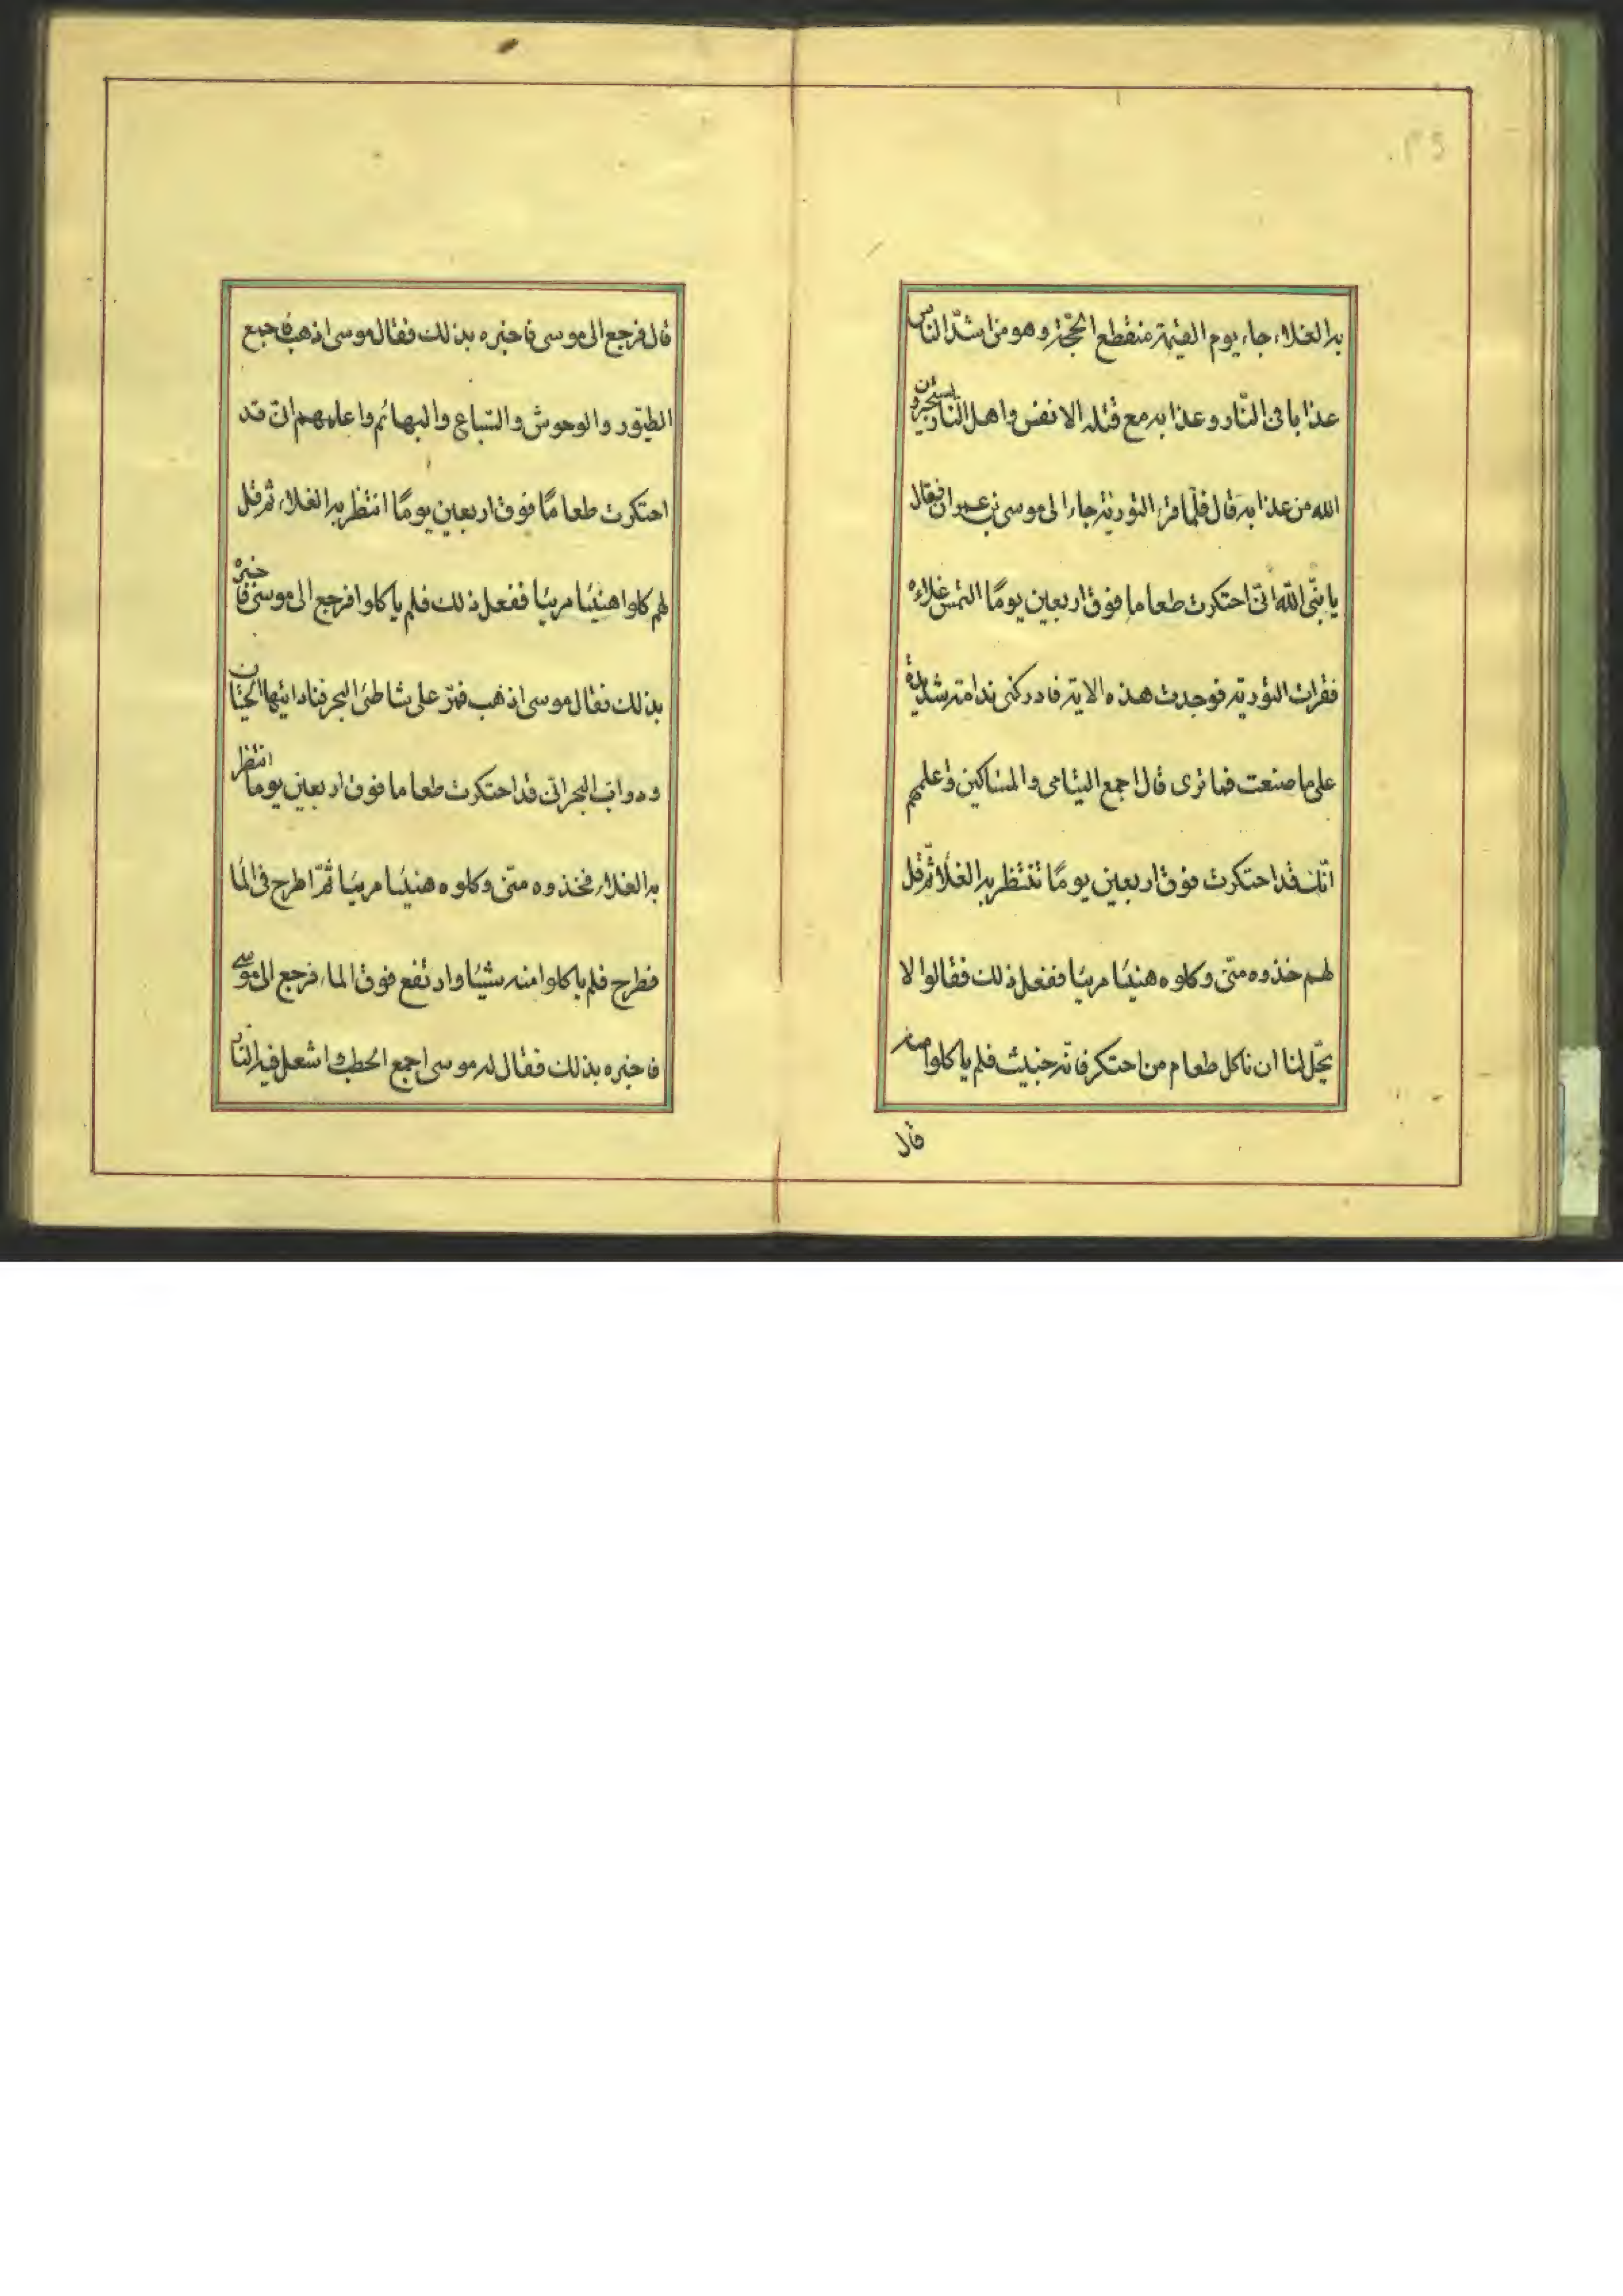 به الغلاء جاء يوم القيمة منقطع الحجّة وهو من اشدّ الناس
عذابا فى النّار وعذابه مع قتله الانفس واهل النّار يستجيرون
الله من عذابه قال فلمّا قرء التورية جاء الى موسى بن عمران فقال
يا نبّى الله انّى احتكرت طعاما فوق اربعين يومًا التمس غلاءه
فقرات التورية فوجدت هذه الاية فادركنى ندامة شديدة
على ما صنعت فما ترى قال اجمع اليتامى والمساكين واعلمهم
انّك قد احتكرت فوق اربعين يومًا تنتظر به الغلاء ثمّ قل
لهم خذوه منّى وكلوه هنيئا مريئا ففعل ذلك فقالوا لا
يحّل لنا ان ناكل طعام من احتكر فانّه خبيث فلم ياكلوا منه
قال
قال فرجع الى موسى فاخبره بذلك فقال موسى اذهب فاجمع
الطيور والوحوش والسّباع والبهائم واعلمهم ان قد
احتكرت طعامًا فوق اربعين يومًا انتظر به الغلاء ثم قل
لهم كلوا هنيئا مريئا ففعل ذلك فلم ياكلوا فرجع الى موسى فاخبره
بذلك فقال موسى اذهب فمرّ على شاطئ البحر فناد ايتها الحيتان
ودواب البحر انّى قد احتكرت طعاما فوق اربعين يوما انتظر
به الغلاء فخذوه منّى وكلوه هنيئا مريئا ثمّ اطرح فى الما
فطرح فلم ياكلوا منه شيئا وارتفع فوق الماء فرجع الى موسى
فاخبره بذلك فقال له موسى اجمع الحطب واشعل فيه النّار